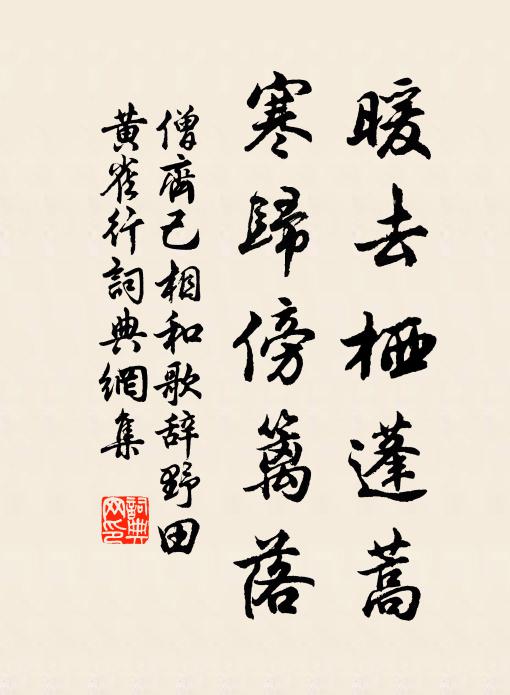 暖去栖蓬蒿
寒歸傍籬落
僧齊己相和歌辞野田
黄雀行詞典網集
詞典网印